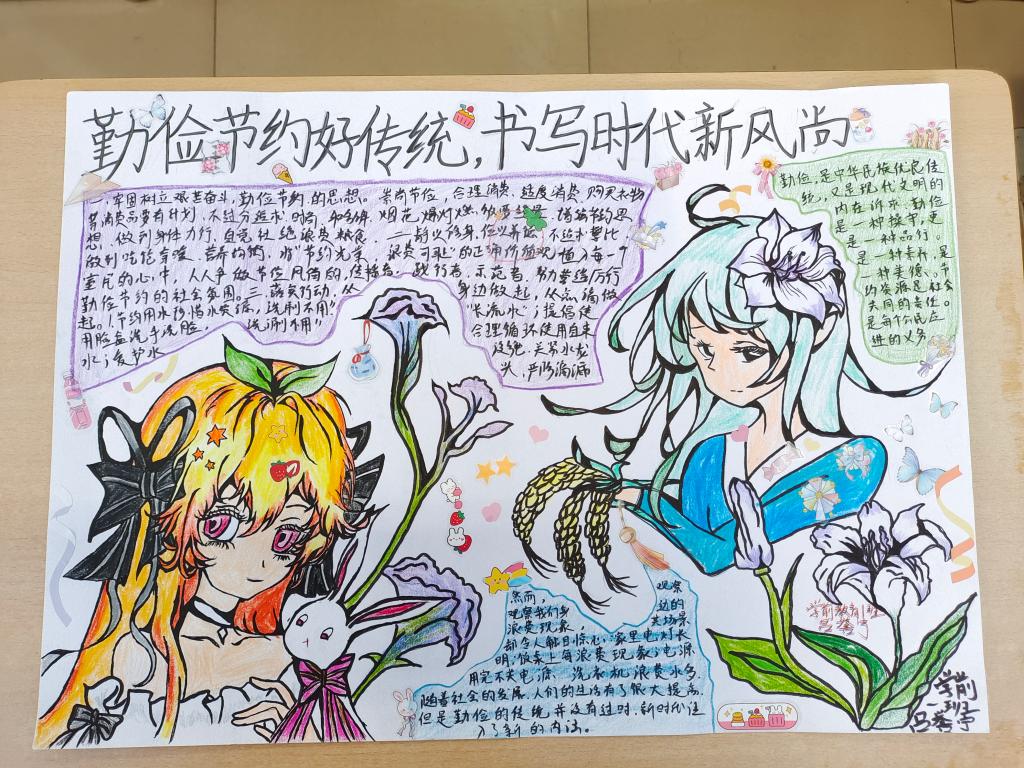 勤俭节约好传统，书写时代新风尚
一、牢固树立艰苦奋斗，勤俭节约的思想。崇尚节俭，合理消费，适度消费，购买衣物
等消费品要有计划，不过分追求时尚，和名牌
想，做到身体力行，自觉杜绝浪费粮食。二
做到吃饱穿暖，营养均衡，将"节约光荣 浪费可耻"的正 植入每一个
室民的心中，人人争做节俭风尚的传播者、践行者、示范者，努力营造厉行
勤俭节约的社会氛围。三、落实行动，从 身边做起，从点滴做
起。(节约用水珍惜水资源， 不用" 长流水"；提倡使
用脸盆洗手洗脸， 合理循环使用自来
水；爱节水 设施，关紧水龙
头，严防滴漏
勤俭，是中华民族优良传
统，又是现代文明的
内在诉求。勤俭
是一种操守，更
是一种品行。
是一种素养，是
一种美德。节
约资源是全社会
共同的责任。
是每个公民应
进的义务
然而， 观察
观察我们身 边的
浪费现象， 其场景
都令人触目惊心：家里电灯长
明；饭桌上每浪费现象；电源
用完不关电源、洗衣机浪费水多。
随着社会的发展，人们的生活有了很大提高，
但是勤俭的传统并没有过时，新时代注
入了新的内涵。
学前教育1班
学前
一班